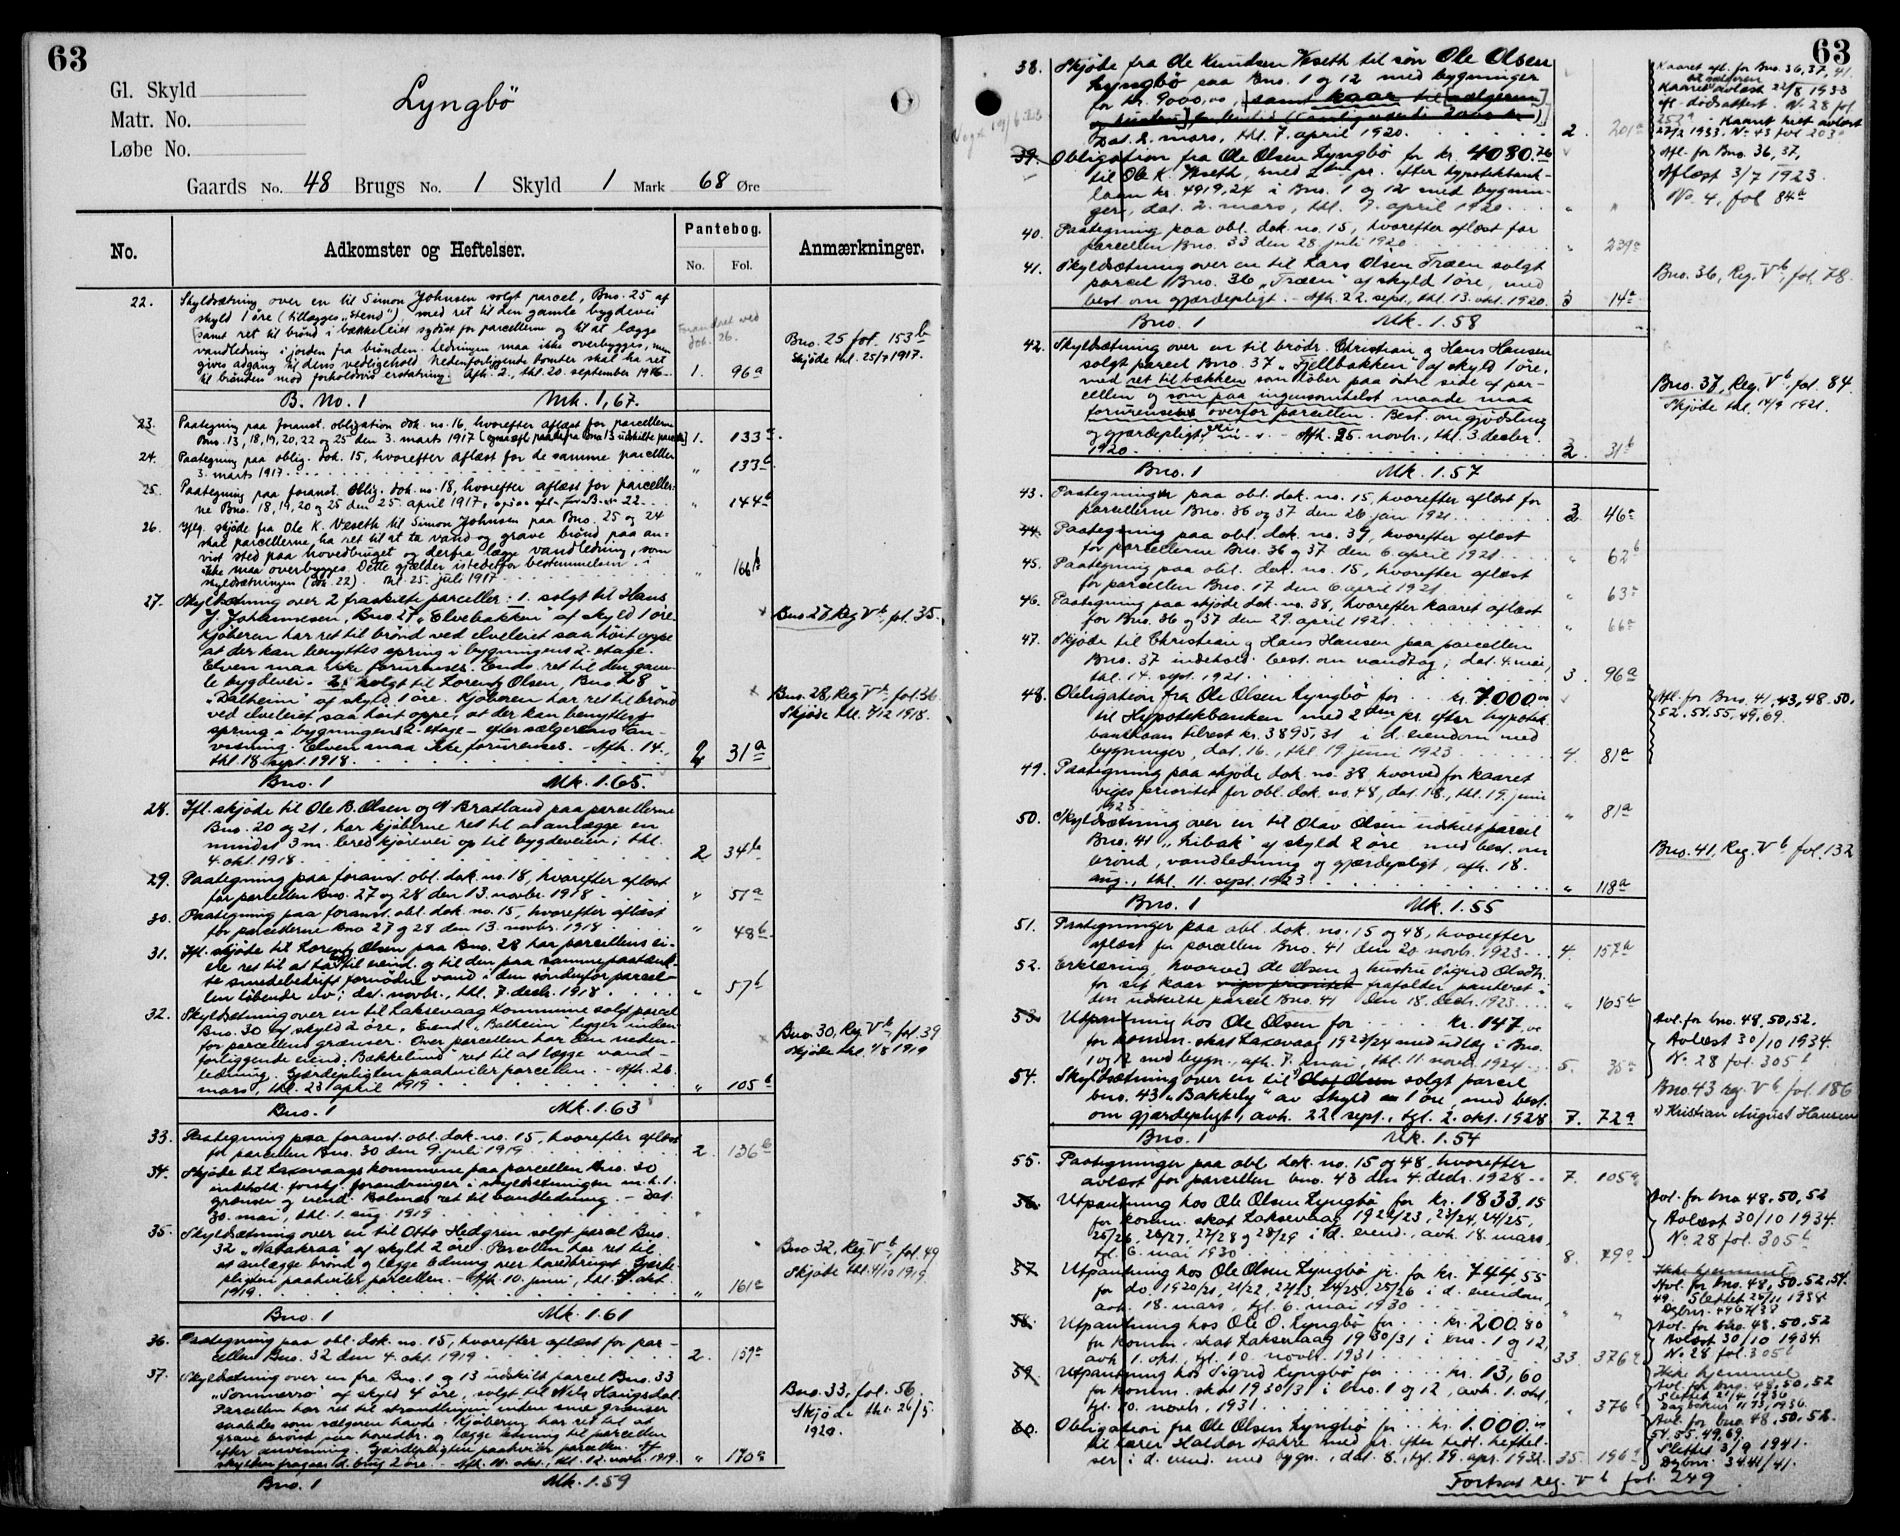 63
Gl. Skyld
Matr. No.
Løbe No.
Lyngbö
Gaards No. 48 Brugs No. 1 Skyld 1 Mark 68 Øre
No.
Adkomster og Heftelser.
Pantebog.
No. Fol.
Anmærkninger.
22. Skyldsætning over en til Simon Johnsen solgt parcel, Bno. 25 af
skyld 1 öre (tillægges „Stend") med ret til den gamle bygdevei
[samt ret til brönd i bækkeleiet sydöst for parcellerne og til at lægge
vandledning i jorden fra brönden. Ledningen maa ikke overbygges, men
gives adgang til dens vedligehold. Nedenforliggende tomter skal ha ret
til brönden mod forholdsvis erstatning.] Afh. 2., thl. 20. september 1916. 1. 96a
Forandret ved
dok. 26.
Bno. 25 fol. 153b
Skjöde thl. 25/7 1917.
B. No. 1 Mk. 1,67.
23. Paategning paa foranst. obligation dok. no. 16, hvorefter aflæst for parcellerne
Bno. 13, 18, 19, 20, 22 og 25 den 3. marts 1917 1. 133a
24. Paategning paa oblig. dok. 15, hvorefter aflæst for de samme parceller
3. marts 1917 " 133b
25. Paategning paa foranst. oblig. dok. no. 18, hvorefter aflæst for parceller-
ne Bno. 18, 19, 20 og 25 den 25. april 1917, " 144b
26. Iflg. skjöde fra Ole K. Veseth til Simon Johnsen paa Bno. 25 og 24
skal parcellerne ha ret til at ta vand og grave brönd paa an-
vist sted paa hovedbruget og derfra lægge vandledning, som
ikke maa overbygges. Dette gjælder istedetfor bestemmelsen i
skyldsætningen (dok. 22). thl. 25. juli 1917 " 166b
27. Skyldsætning over 2 fraskilte parceller: 1. solgt til Hans
J. Johannesen, Bno. 27 „Elvebakken" af skyld 1 öre.
Kjöberen har ret til brönd ved elveleiet saa höit oppe
at der kan benyttes spring i bygningens 2. etage.
Elven maa ikke forurenses. Endv. ret til den gam-
le bygdevei. 2. solgt til Lorentz Olsen, Bno. 28
„Dalheim" af skyld 1 öre. Kjöberen har ret til brönd
ved elveleiet saa höit oppe, at der kan benyttes
spring i bygningens 2. etage – efter sælgerens an-
visning. Elven maa ikke forurenses. – Afh. 14.,
thl. 18. sept. 1918. 2 31a
Bno 27, Reg Vb, fol. 35.
Bno. 28, Reg Vb, fol. 36
Skjöde thl. 7/12 1918.
Bno. 1 Mk. 1.65.
28. Ifl. skjöde til Ole B. Olsen og N. Bratland paa parcellerne
Bno. 20 og 21, har kjöberne ret til at anlægge en
mindst 3 m. bred kjörevei op til bygdeveien; thl.
4. okt. 1918 2 34b
29. Paategning paa foranst. obl. dok. no. 18, hvorefter aflæst
for parcellen Bno. 27 og 28 den 13. novbr. 1918 " 51a
30. Paategning paa foranst. obl. dok. no. 15, hvorefter aflæst
for parcellerne Bno 27 og 28 den 13. novbr. 1918 " 48b
31. Ifl. skjöde til Lorentz Olsen paa Bno. 28 har parcellens ei-
er ret til at ta til eiend. og til den paa samme paatænk-
te smedebedrift fornödne vand i den söndenfor parcel-
len löbende elv; dat. novbr., thl. 7. decb. 1918 " 57b
32. Skyldsætning over en til Laksevaag kommune solgt parcel
Bno. 30 af skyld 2 öre. Eiend. „Balheim" ligger inden-
for parcellens grænser. Over parcellen har den neden-
forliggende eiend. „Bækkelund" ret til at lægge vand-
ledning. Gjærdepligten paahviler parcellen. – Afh. 26.
mars, thl. 23 april 1919 " 105b
Bno. 30, Reg Vb, fol. 39
Skjöde thl. 1/8 1919
Bno. 1 Mk. 1.63
33. Paategning paa foranst. obl. dok. no. 15, hvorefter aflæst
for parcellen Bno. 30 den 9. juli 1919 2. 136b
34. Skjöde til Laksevaags kommune paa parcellen Bno. 30
indehold. forskj. forandringer i skyldsætningen m. h. t.
grænser og eiend. Balheims ret til vandledning. – Dat.
30. mai, thl. 1. aug. 1919 "
35. Skyldsætning over en til Otto Hedgren solgt parcel Bno.
32 „Nattakraa" af skyld 2 öre. Parcellen har ret til
at anlægge brönd og lægge ledning over hovedbruget. Gjærde-
pligten paahviler parcellen. – Afh. 10. juni, thl. 4. okt.
1919. " 161a
Bno 32, Reg. Vb, fol. 49
Skjöde thl. 4/10 1919.
Bno. 1 Mk. 1.61
36. Paategning paa obl. dok. no. 15, hvorefter aflæst for par-
cellen Bno. 32 den 4. okt. 1919 2. 159a
37. Skyldsætning over en fra Bno. 1 og 13 udskilt parcel Bno. 33
„Sommerro" af skyld 4 öre, solgt til Nils Haugsdal.
Parcellen har ret til strandlinjen inden sine grænser
saaledes som sælgeren havde. Kjöberen har ret til at
grave brönd paa hovedbr. og lægge ledning til parcellen
efter anvisning. Gjærdepligten paahviler parcellen. Af
skylden fragaar d. brug 2 öre. – Afh. 10. okt., thl. 12. novbr. 1919. " 170a
Bno. 33, fol. 56.
Skjöde thl. 26/5
1920.
Bno. 1 Mk. 1.59
63
38. Skjöde fra Ole Knudsen Veseth til sön Ole Olsen
Lyngbö paa Bno. 1 og 12 med bygninger
for kr. 9000,00, [samt kaar til [sælgeren]
Dat. 2. mars, thl. 7. april 1920. 2. 201a
Kaaret afl. for Bno. 36, 37, 41.
Kaaret avlæst 22/8 1933
efl. dödsattest. No 28 fol
252a. Kaaret helt avlæst
27/2 1933. No 43 fol 203a
39. Obligation fra Ole Olsen Lyngbö for kr. 4080.76
til Ole K. Veseth, med 2den pr. efter hypotekbank-
laan kr. 4919,24 i Bno. 1 og 12 med bygnin-
ger, dat. 2. mars, thl. 7. april 1920. " "
Afl. for Bno. 36, 37,
Aflæst 3/7 1923.
No. 4, fol 84b
40. Paategning paa obl. dok. no. 15, hvorefter aflæst for
parcellen Bno. 33 den 28. juli 1920 " 239a
41. Skyldsætning over en til Lars Olsen Træen solgt
parcel Bno. 36 „Træen" af skyld 1 öre, med
best. om gjærdepligt. – Afh. 22. sept., thl. 13. okt. 1920. 3 14a
Bno. 36, Reg. Vb, fol. 78.
Bno. 1 Mk. 1.58
42. Skyldsætning over en til brödr. Christian og Hans Hansen
solgt parcel Bno. 37 „Fjellbakken" af skyld 1 öre,
med ret til bækken som löber paa östre side af par-
cellen og som paa ingensomhelst maade maa
forurenses overfor parcellen. Best. om gjödsling
og gjærdepligt, vei m. v. – Afh. 25. novbr., thl. 3. decbr.
1920. 3 31b
Bno. 37, Reg. Vb, fol. 84
Skjöde thl. 14/9 1921.
Bno. 1 Mk. 1.57
43. Paategninger paa obl. dok. no. 15, hvorefter aflæst for
parcellerne Bno. 36 og 37 den 26. jan 1921 3 46a
44. Paategning paa obl. dok. no. 39, hvorefter aflæst
for parcellerne Bno. 36 og 37 den 6. april 1921. " 62b
45. Paategning paa obl. dok. no. 15, hvorefter aflæst
for parcellen Bno. 17 den 6. april 1921 " 63a
46. Paategning paa skjöde dok. no. 38, hvorefter kaaret aflæst
for Bno. 36 og 37 den 29. april 1921 " 66a
47. Skjöde til Christian og Hans Hansen paa parcellen
Bno. 37 indehold. best. om vandtag; dat. 4. mai,
thl. 14. sept. 1921 3. 96a
48. Obligation fra Ole Olsen Lyngbö for kr. 7000,00
til Hypotekbanken med 2den pr. efter hypotek-
banklaan tilrest kr. 3895,31 i d. eiendom med
bygninger, dat. 16., thl. 19. juni 1923 4. 81a
Afl. for Bno. 41, 43, 48, 50,
52, 54, 55, 49, 69.
49. Paategning paa skjöde dok. no. 38 hvorved for kaaret
viges prioritet for obl. dok. no. 48, dat. 18., thl. 19. juni
1923 " 81a
50. Skyldsætning over en til Olav Olsen udskilt parcel
Bno. 41 „Libak" af skyld 2 öre med best. om
brönd, vandledning og gjærdepligt, afh. 18.
aug., thl. 11. sept. 1923 " 118a
Bno. 41, Reg. Vb, fol. 132
Bno. 1 Mk. 1.55
51. Paategninger paa obl. dok. no. 15 og 48, hvorefter
aflæst for parcellen Bno. 41 den 20. novbr. 1923 4. 157b
52. Erklæring, hvorved Ole Olsen og hustru Sigrid Olsdtr.
for sit kaar viger prioritet frafalder panteret i
den udskilte parcel Bno. 41 den 18. decbr. 1923 " 165b
53. Utpantning hos Ole Olsen for kr. 147,00
for komm. skat Laksevaag 1923/24 med udlæg i Bno.
1 og 12 med bygn. afh. 7. mai, thl. 11. novbr. 1924 5. 35a
Avl. for bno. 48, 50, 52.
Avlæst 30/10 1934.
No. 28 fol. 305b
54. Skyldsætning over en til Olaf Olsen solgt parcel
bno. 43 „Bakkely" av skyld 1 öre, med best.
om gjærdepligt, avh. 22. sept., tgl. 2. okt. 1928 7. 72a
Bno. 43 reg. Vb fol. 186
1) Kristian August Hansen
Bno. 1 Mk. 1.54
55. Paategninger paa obl. dok. no. 15 og 48, hvorefter
avlæst for parcellen bno. 43 den 4. decbr. 1928 7. 105a
56. Utpantning hos Ole Olsen Lyngbö for kr. 1833,15
for komm. skat Laksevaag 1922/23, 23/24, 24/25,
25/26, 26/27, 27/28 og 28/29 i d. eiend., avh. 18. mars,
tgl. 6. mai 1930 8. 79a
Avl. for bno 48, 50, 52
Avlæst 30/10 1934.
No. 28 fol. 305b
57. Utpantning hos Ole Olsen Lyngbö jr. for kr. 744,55
for do. 1920/21, 21/22, 22/23, 24/25, 25/26 i d. eiendom,
avh. 18. mars, tgl. 6. mai 1930 " "
Ikke hjemmel
Avl. for bno. 48, 50, 52, 54.
49. Slettet 26/11 1938
58. Utpantning hos Ole O. Lyngbö for kr. 200.80
for komm. skat Laksevaag 1930/31 i bno. 1 og 12,
avh. 1. okt., tgl. 10. novbr. 1931 33. 376a
Avl. for bno. 48, 50, 52
Avlæst 30/10 1934.
No 28 fol. 305b
59. Utpantning hos Sigrid Lyngbö for kr. 13,60
for komm. skat 1930/31 i bno. 1 og 12, avh. 1. okt.,
tgl. 10. novbr. 1931. " 376
Ikke hjemmel
Avl. for bno. 48, 50, 52
Slettet 21/4 1936
60. Obligation fra Ole Olsen Lyngbö for kr. 1.000,00
til lærer Haldor Aakre med pr. efter tidl. heftel-
ser i d. eiend. med bygn., dat. 8., tgl. 29. apr. 1932. 35. 196a
Avl. for bno. 48, 50, 52.
54, 55, 49, 69.
Slettet 3/9 1941.
Dgbnr. 3441/41.
Fortsat reg. Vb fol. 249